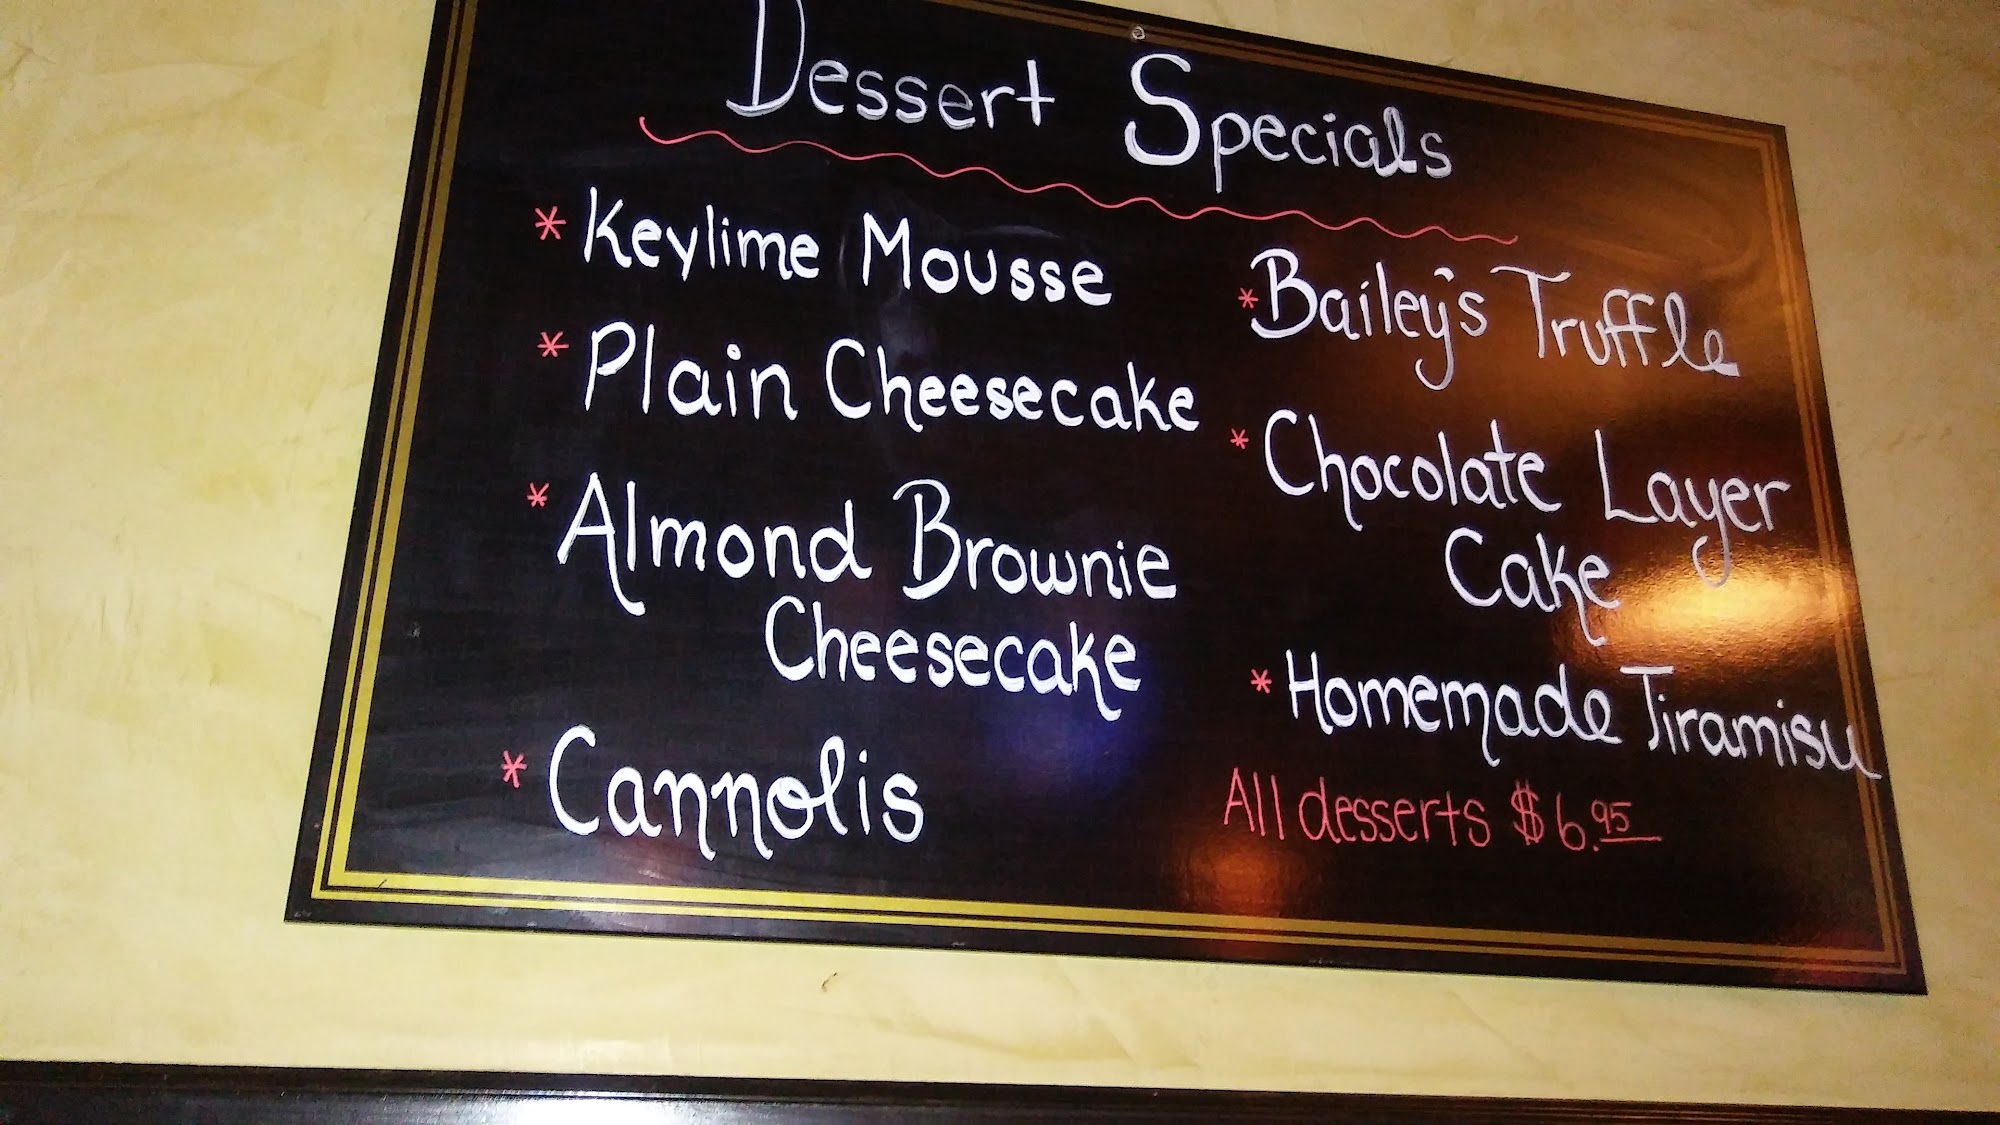 Dessert Specials
* Keylime Mousse
* Plain Cheesecake
* Almond Brownie
Cheesecake
* Cannolis
* Bailey's Truffle
* Chocolate Layer
Cake
* Homemade Tiramisu
All desserts $6.95